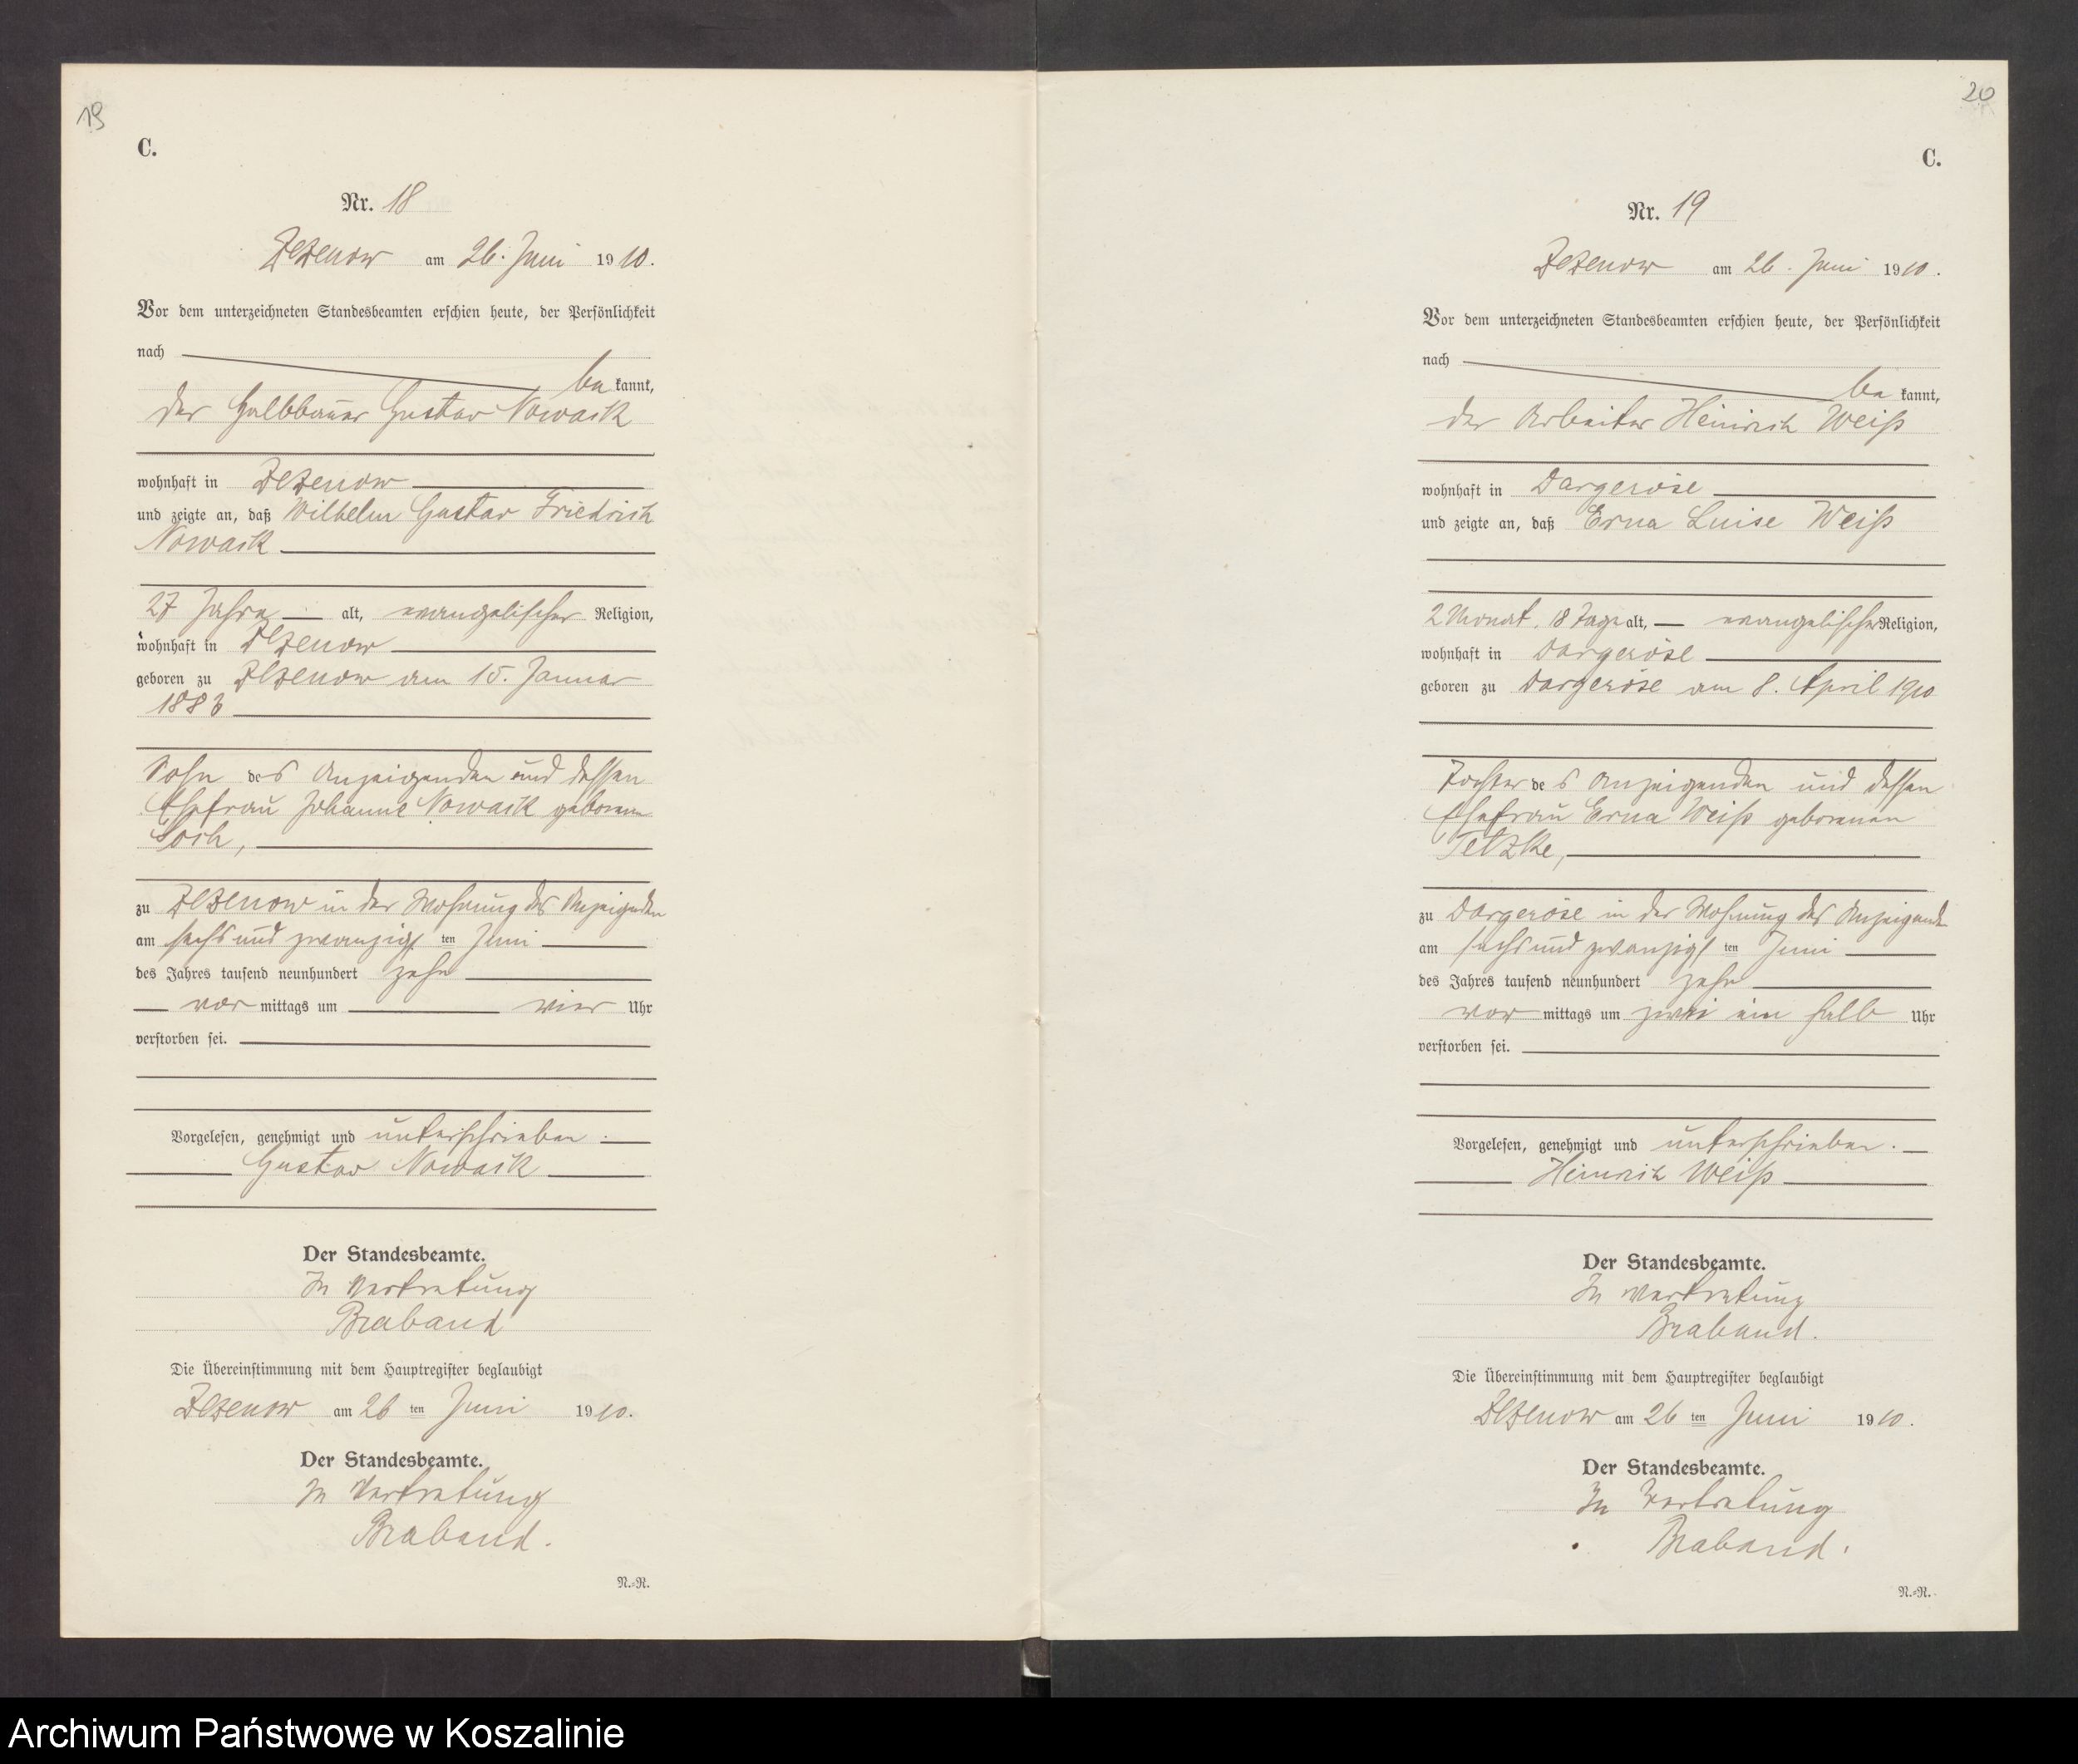 19
C.
Nr. 18
Zezenow am 26. Juni 1910.
Vor dem unterzeichneten Standesbeamten erschien heute, der Persönlichkeit
nach
be kannt,
der Halbbauer Gustav Nowack
wohnhaft in Zezenow
und zeigte an, daß Wilhelm Gustav Friedrich
Nowack
27 Jahre alt, evangelischer Religion,
wohnhaft in Zezenow
geboren zu Zezenow am 15. Januar
1883
Sohn des Anzeigenden und dessen
Ehefrau Johanne Nowack geborene
zu Zezenow in der Wohnung des Anzeigenden
am sechs und zwanzigsten Juni
des Jahres tausend neunhundert zehn
vor mittags um vier Uhr
verstorben sei.
Vorgelesen, genehmigt und unterschrieben.
Gustav Nowack
Der Standesbeamte.
In Vertretung
Braband
Die Übereinstimmung mit dem Hauptregister beglaubigt
Zezenow am 26 ten Juni 1910.
Der Standesbeamte.
In Vertretung
Braband.
N.=R.
20
C.
Nr. 19
Zezenow am 26. Juni 1910.
Vor dem unterzeichneten Standesbeamten erschien heute, der Persönlichkeit
nach
be kannt,
der Arbeiter Heinrich Weiß
wohnhaft in Dargeröse
und zeigte an, daß Erna Luise Weiß
2 Monat, 18 Tage alt, evangelischer Religion,
wohnhaft in Dargeröse
geboren zu Dargeröse am 8. April 1910
Tochter des Anzeigenden und dessen
Ehefrau Erna Weiß geborenen
Tetzke,
zu Dargeröse in der Wohnung des Anzeigenden
am sechs und zwanzigsten Juni
des Jahres tausend neunhundert zehn
vor mittags um zwei ein halb Uhr
verstorben sei.
Vorgelesen, genehmigt und unterschrieben.
Heinrich Weiß
Der Standesbeamte.
In Vertretung
Braband.
Die Übereinstimmung mit dem Hauptregister beglaubigt
Zezenow am 26 ten Juni 1910.
Der Standesbeamte.
In Vertretung
Braband.
N.=R.
Archiwum Państwowe w Koszalinie